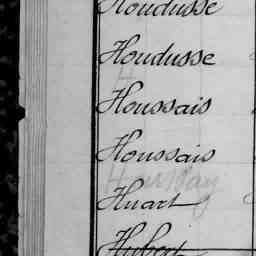 Houdusse
Houdusse
Houssais
Houssais
Huart
Hubert